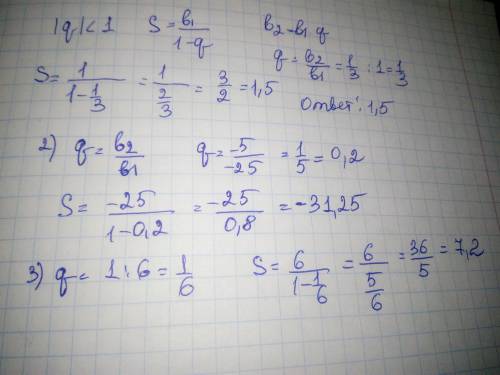 |q|<1   S = b₁/(1-q)   b₂=b₁ q
q = b₂/b₁ = 1/3 : 1 = 1/3
S = 1/(1-1/3) = 1/(2/3) = 3/2 = 1,5
Ответ: 1,5
2) q = b₂/b₁   q = -5/-25 = 1/5 = 0,2
S = -25/(1-0,2) = -25/0,8 = -31,25
3) q = 1:6 = 1/6   S = 6/(1-1/6) = 6/(5/6) = 36/5 = 7,2